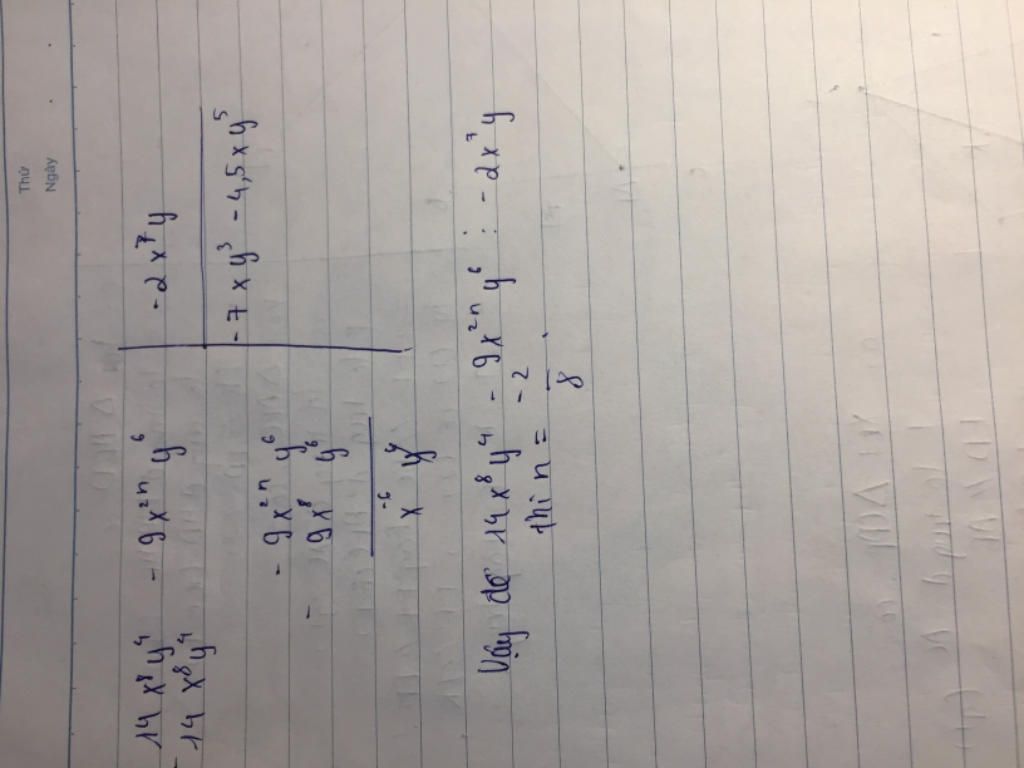 Thứ
Ngày
14 x⁸y⁴ - 9x²ⁿ y⁶ -2x⁷y
- 14 x⁸y⁴ -7xy³ - 4,5xy⁵
- 9x²ⁿ y⁶
- 9x⁸ y⁶
x⁻⁶ y⁴
Vậy để 14x⁸y⁴ - 9x²ⁿ y⁶ : -2x⁷y
thì n = -2/8.